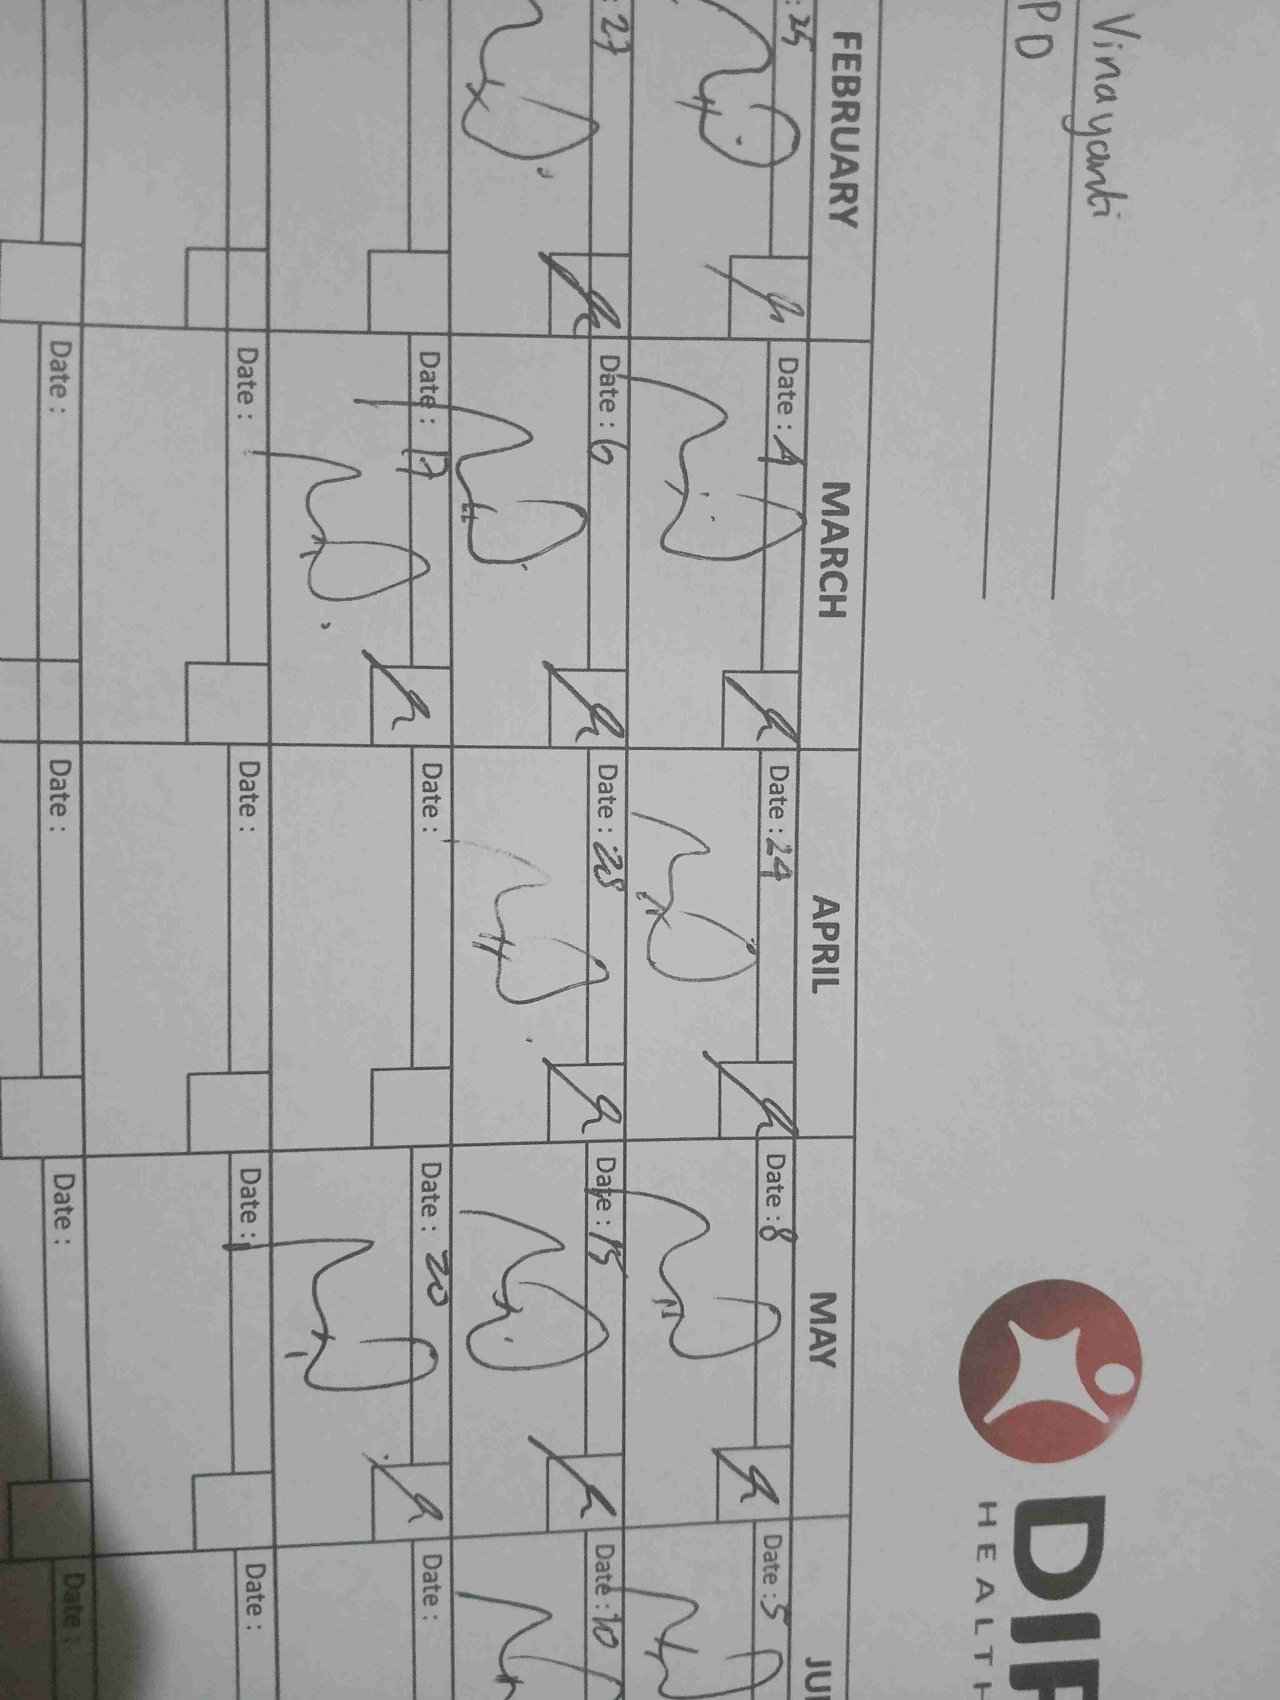 Vinayanti
PD
DIF
HEALTH
FEBRUARY MARCH APRIL MAY JU
: 25 Date : 4 Date : 24 Date : 8 Date : 5
: 27 Date : 6 Date : 28 Date : 15 Date : 10
Date : 17 Date : Date : 20 Date :
Date : Date : Date : Date :
Date : Date : Date : Date :